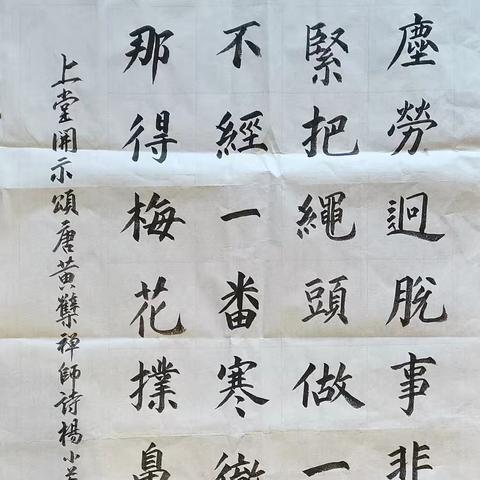 塵勞迥脫事非
緊把繩頭做一
不經一番寒徹
那得梅花撲鼻
上堂開示頌唐黃檗禪師詩楊小